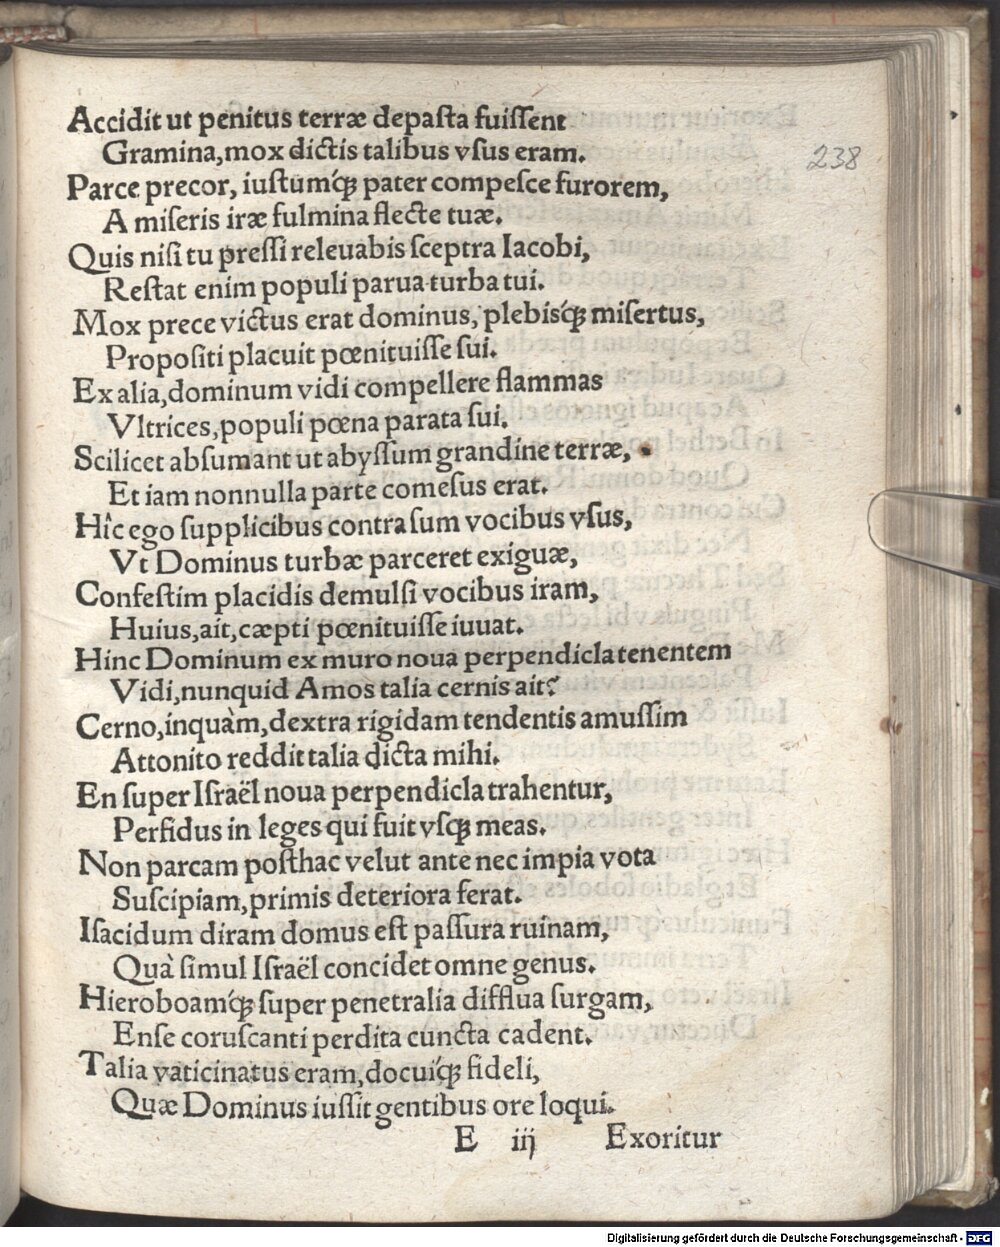 Accidit ut penitus terræ depaſta fuiſſent
Gramina, mox dictis talibus vſus eram.
238
Parce precor, iuſtumq́ꝫ pater compeſce furorem,
A miſeris iræ fulmina flecte tuæ.
Quis niſi tu preſſi releuabis ſceptra Iacobi,
Reſtat enim populi parua turba tui.
Mox prece victus erat dominus, plebisq́ꝫ miſertus,
Propoſiti placuit pœnituiſſe ſui.
Ex alia, dominum vidi compellere flammas
Vltrices, populi pœna parata ſui.
Scilicet abſumant ut abyſſum grandine terræ,
Et iam nonnulla parte comeſus erat.
Hîc ego ſupplicibus contra ſum vocibus vſus,
Vt Dominus turbæ parceret exiguæ,
Confeſtim placidis demulſi vocibus iram,
Huius, ait, cæpti pœnituiſſe iuuat.
Hinc Dominum ex muro noua perpendicla tenentem
Vidi, nunquid Amos talia cernis ait?
Cerno, inquàm, dextra rigidam tendentis amuſſim
Attonito reddit talia dicta mihi.
En ſuper Iſraël noua perpendicla trahentur,
Perfidus in leges qui fuit vſqꝫ meas.
Non parcam poſthac velut ante nec impia vota
Suſcipiam, primis deteriora ferat.
Iſacidum diram domus eſt paſſura ruinam,
Quà ſimul Iſraël concidet omne genus.
Hieroboamq́ꝫ ſuper penetralia difflua ſurgam,
Enſe coruſcanti perdita cuncta cadent.
Talia vaticinatus eram, docuiq́ꝫ fideli,
Quæ Dominus iuſſit gentibus ore loqui.
E iij Exoritur
Digitalisierung gefördert durch die Deutsche Forschungsgemeinschaft - DFG